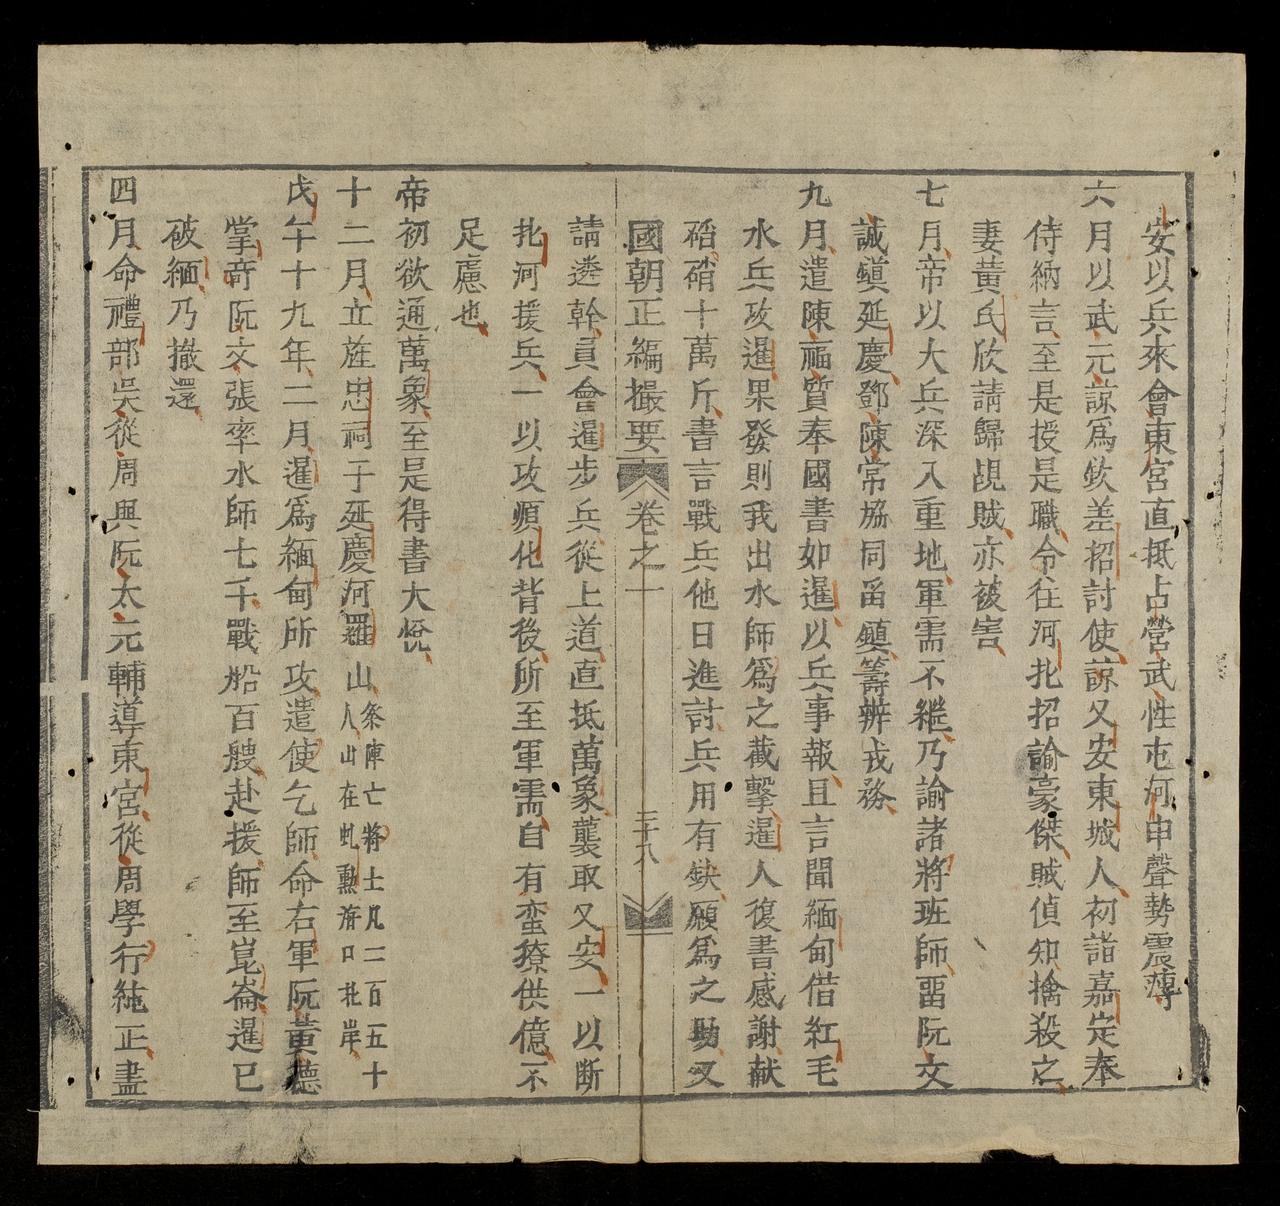 安以兵來會東宮直抵占營武性屯河申聲勢震薄
六月以武元諒爲欽差招討使諒又安東城人初詣嘉定奉
侍納言至是授是職令往河北招諭豪傑賊偵知擒殺之
妻黄氏欣請歸覘賊亦被害
七月帝以大兵深入重地軍需不繼乃諭諸將班師畱阮文
誠鎮延慶鄧陳常協同畱鎮籌辨戎務
九月遣陳福質奉國書如暹以兵事報且言聞緬甸借紅毛
水兵攻暹果發則我出水師爲之截擊暹人復書感謝献
硝十萬斤書言戰兵他日進討兵用有缺願爲之助又
國朝正編撮要 卷之一 三十八
請遴幹員會暹步兵從上道直抵萬象襲取乂安一以斷
北河援兵一以攻順化背後所至軍需自有蛮獠供億不
足慮也
帝初欲通萬象至是得書大悅
十二月立旌忠祠于延慶河羅山条陣亡將士凡二百五十人山在虬勲滂口北岸
戊午十九年二月暹爲緬甸所攻遣使乞師命右軍阮黄德
掌奇阮文張率水師七千戰船百艘赴援師至崑崙暹已
破緬乃撤還
四月命禮部吳從周興阮太元輔導東宮從周學行純正盡